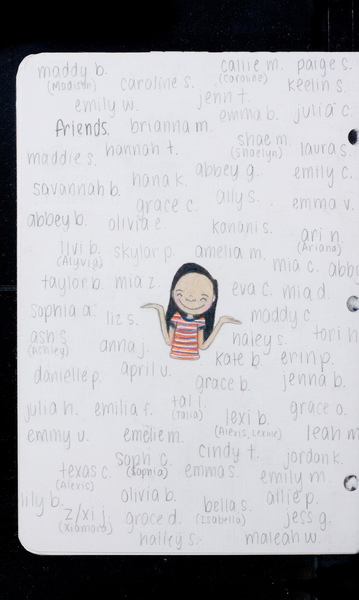 maddy b. callie m. paige s.
(Madisyn) caroline s. (Caroline) keelin s.
emily w. jenn t.
emma b. julia c.
friends. brianna m.
shae m.
maddie s. hannah t. (Shaelyn) laura s.
hana k. abbey g. emily c.
savannah b. grace c. ally s. emma v.
abbey b. olivia e. kanani s. ari n.
livi b. skylar p. amelia m. (Ariana)
(Alyvia) mia c. abby
taylor b. mia z. eva c. mia d.
sophia a. liz s. maddy c.
ash s. haley s. tori h
(Ashley) anna j. kate b. erin p.
danielle p. april u. grace b. jenna b.
julia h. emilia f. tal i. grace o.
(Talia) lexi b.
emmy v. emelie m. (Alexis, Lexine) leah m
soph c. cindy t. jordan k.
texas c. (Sophia) emma s. emily m.
(Alexis)
lily b. olivia b. bella s. allie p.
z/xi j. grace d. (Isabella) jess g.
(Xiamara) hailey s. maleah w.